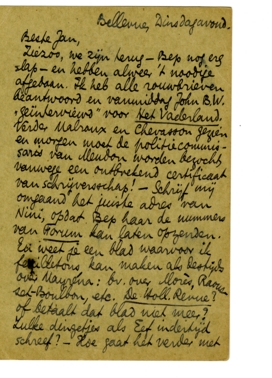 Bellevue, Dinsdagavond.
Beste Jan,
Ziezoo, we zijn terug – Bep nog erg
slap – en hebben alweer 't noodige
afgedaan. Ik heb alle rouwbrieven
beantwoord en vanmiddag John B.W.
"geïnterviewd" voor Het Vaderland,
verder Malraux en Chevasson gezien
en morgen moet de politiecommis-
saris van Meudon worden bezocht
vanwege een ontbrekend certificaat
van schrijverschap! – Schrijf mij
omgaand het juiste adres van
Nini, opdat Bep haar de nummers
van Forum kan laten opzenden.
En weet je een blad waarvoor ik
feuilletons kan maken als destijds
over Mayréna: bv. over Morès, Raous-
set-Boulbon, etc. De Holl. Revue?
of betaalt dat blad niet meer?
Zulke dingetjes als Eet indertijd
schreef? – Hoe gaat het verder met